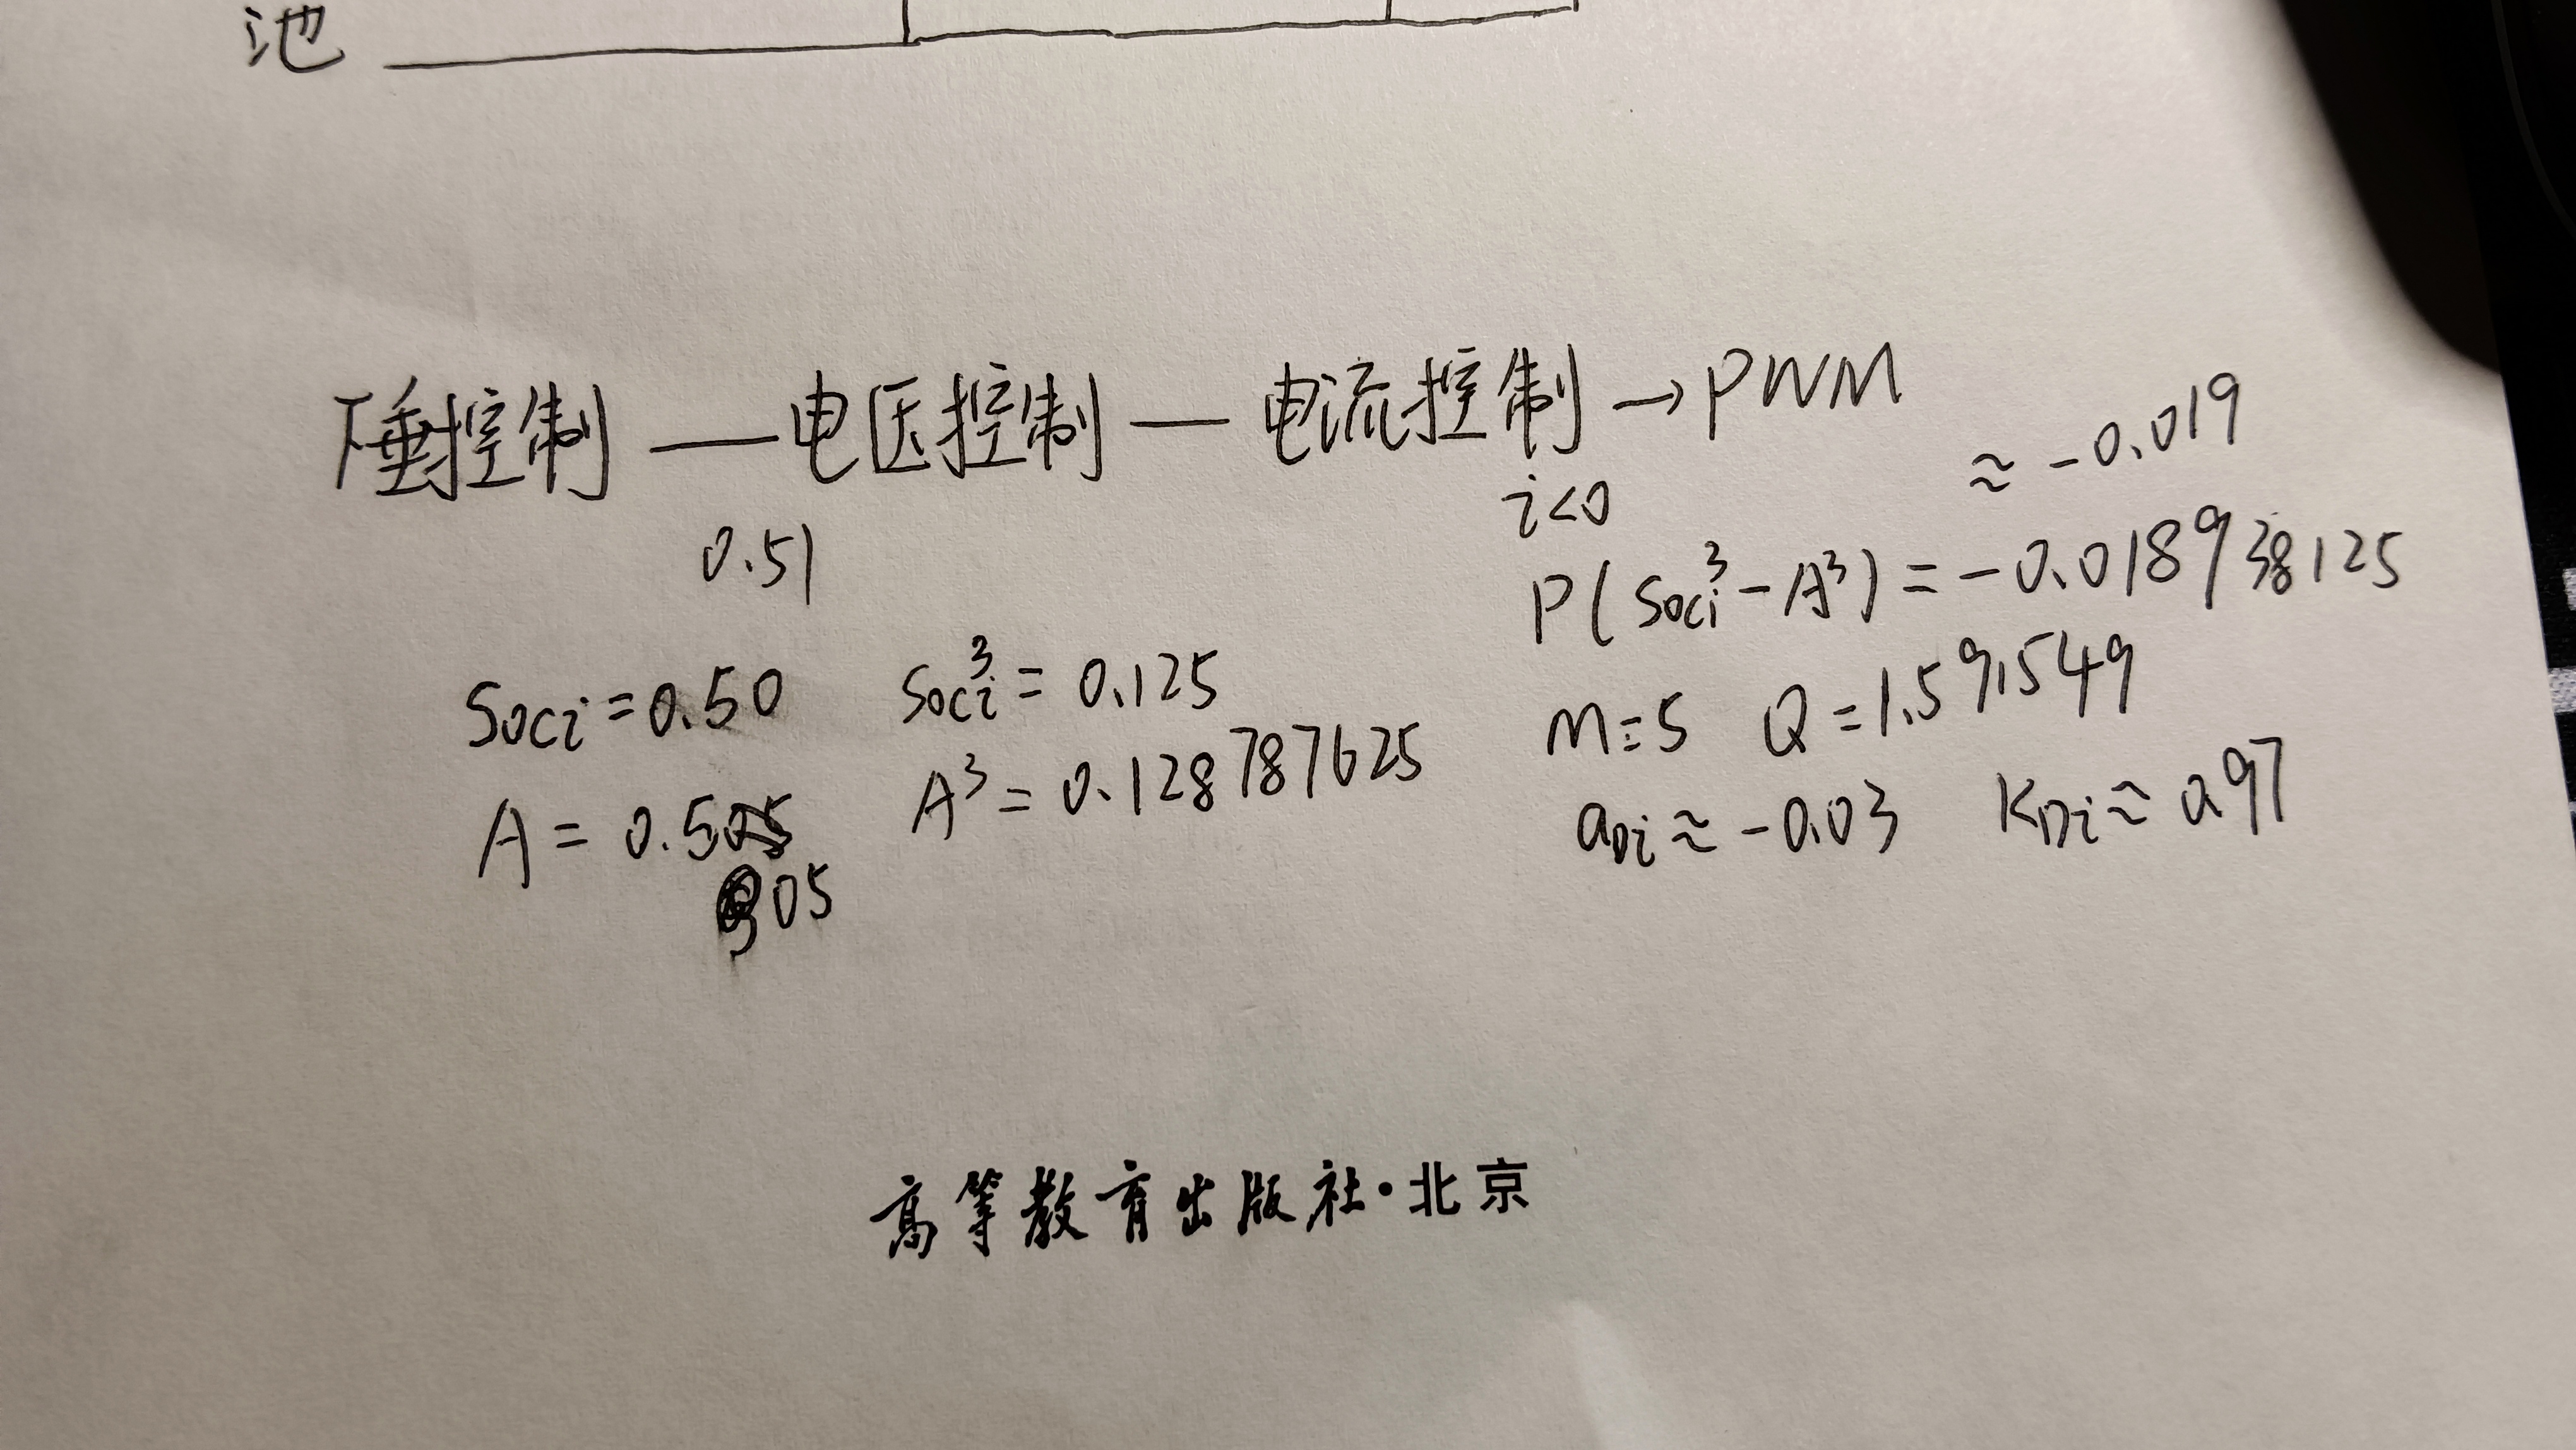 池
下垂控制 — 电压控制 — 电流控制 → PWM
i<0
≈ -0.019
0.51
P(Soci³-A³) = -0.018938125
Soci=0.50 Soci³ = 0.125
M=5 Q=1.591549
A = 0.505 A³ = 0.128787625
aDi ≈ -0.03 KDi ≈ 0.97
05
高等教育出版社·北京